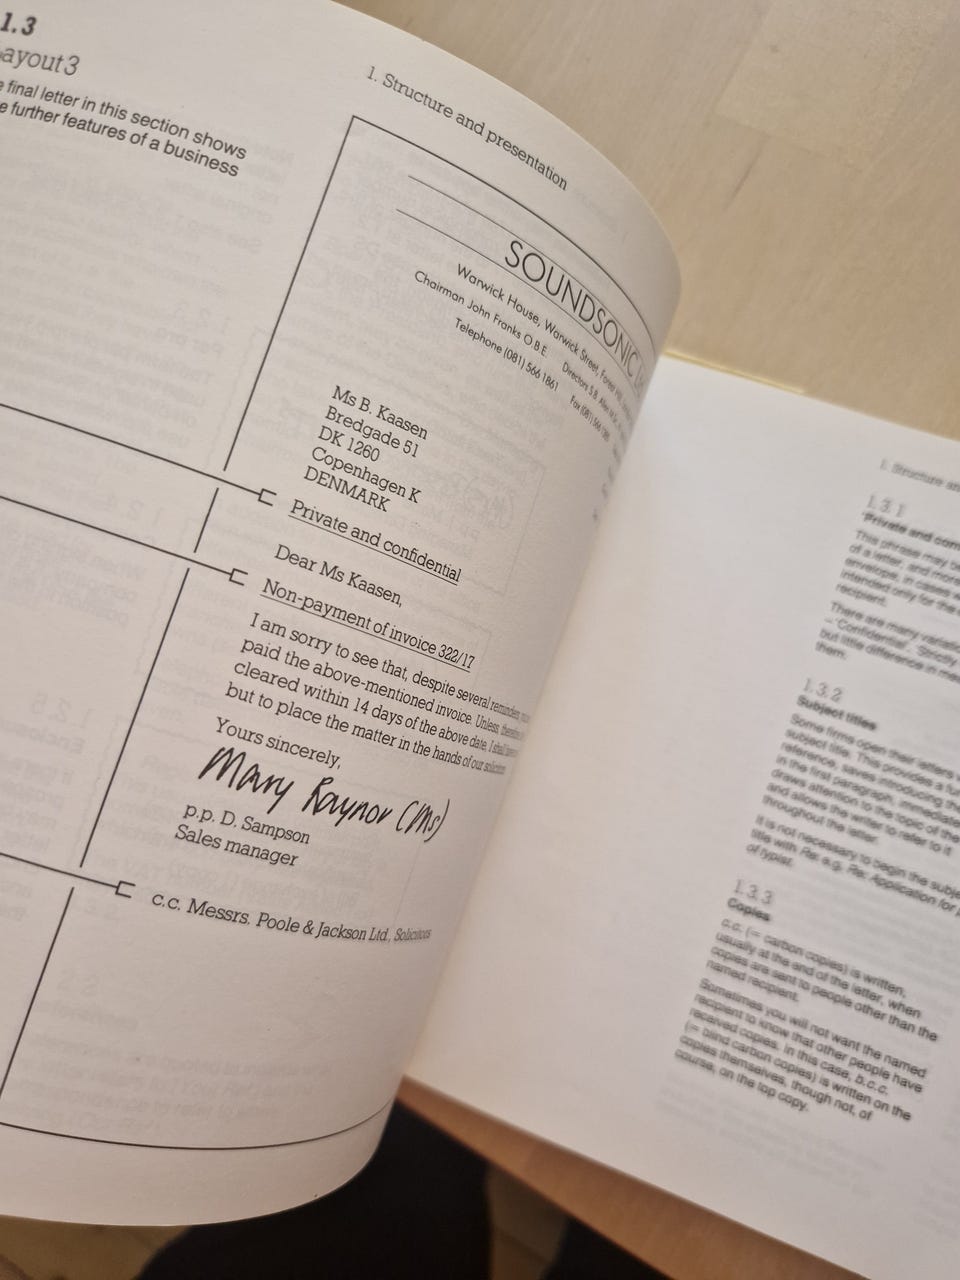 1.3
ayout 3
final letter in this section shows
e further features of a business
1. Structure and presentation
SOUNDSONIC
Warwick House, Warwick Street, Forest Hill,
Chairman John Franks O.B.E. Directors S.B. Allen
Telephone (081) 566 1861 Fax (081) 566
Ms B. Kaasen
Bredgade 51
DK 1260
Copenhagen K
DENMARK
Private and confidential
Dear Ms Kaasen,
Non-payment of invoice 322/17
I am sorry to see that, despite several reminders,
paid the above-mentioned invoice. Unless
cleared within 14 days of the above date, I shall
but to place the matter in the hands of our solicitors
Yours sincerely,
Mary Raynor (Ms)
p.p. D. Sampson
Sales manager
c.c. Messrs. Poole & Jackson Ltd., Solicitors
1. Structure
1.3.1
'Private and
This phrase may
of a letter, and more
envelope, in cases
intended only for the
recipient.
There are many
– 'Confidential', 'Strictly
but little difference in
them.
1.3.2
Subject titles
Some firms open their letters
subject title. This provides a
reference, saves introducing the
in the first paragraph, immediate
draws attention to the topic of the
and allows the writer to refer to it
throughout the letter.
It is not necessary to begin the
title with Re: e.g. Re: Application for
of typist.
1.3.3
Copies
c.c. (= carbon copies) is written,
usually at the end of the letter, when
copies are sent to people other than the
named recipient.
Sometimes you will not want the named
recipient to know that other people have
received copies. In this case, b.c.c.
(= blind carbon copies) is written on the
copies themselves, though not, of
course, on the top copy.